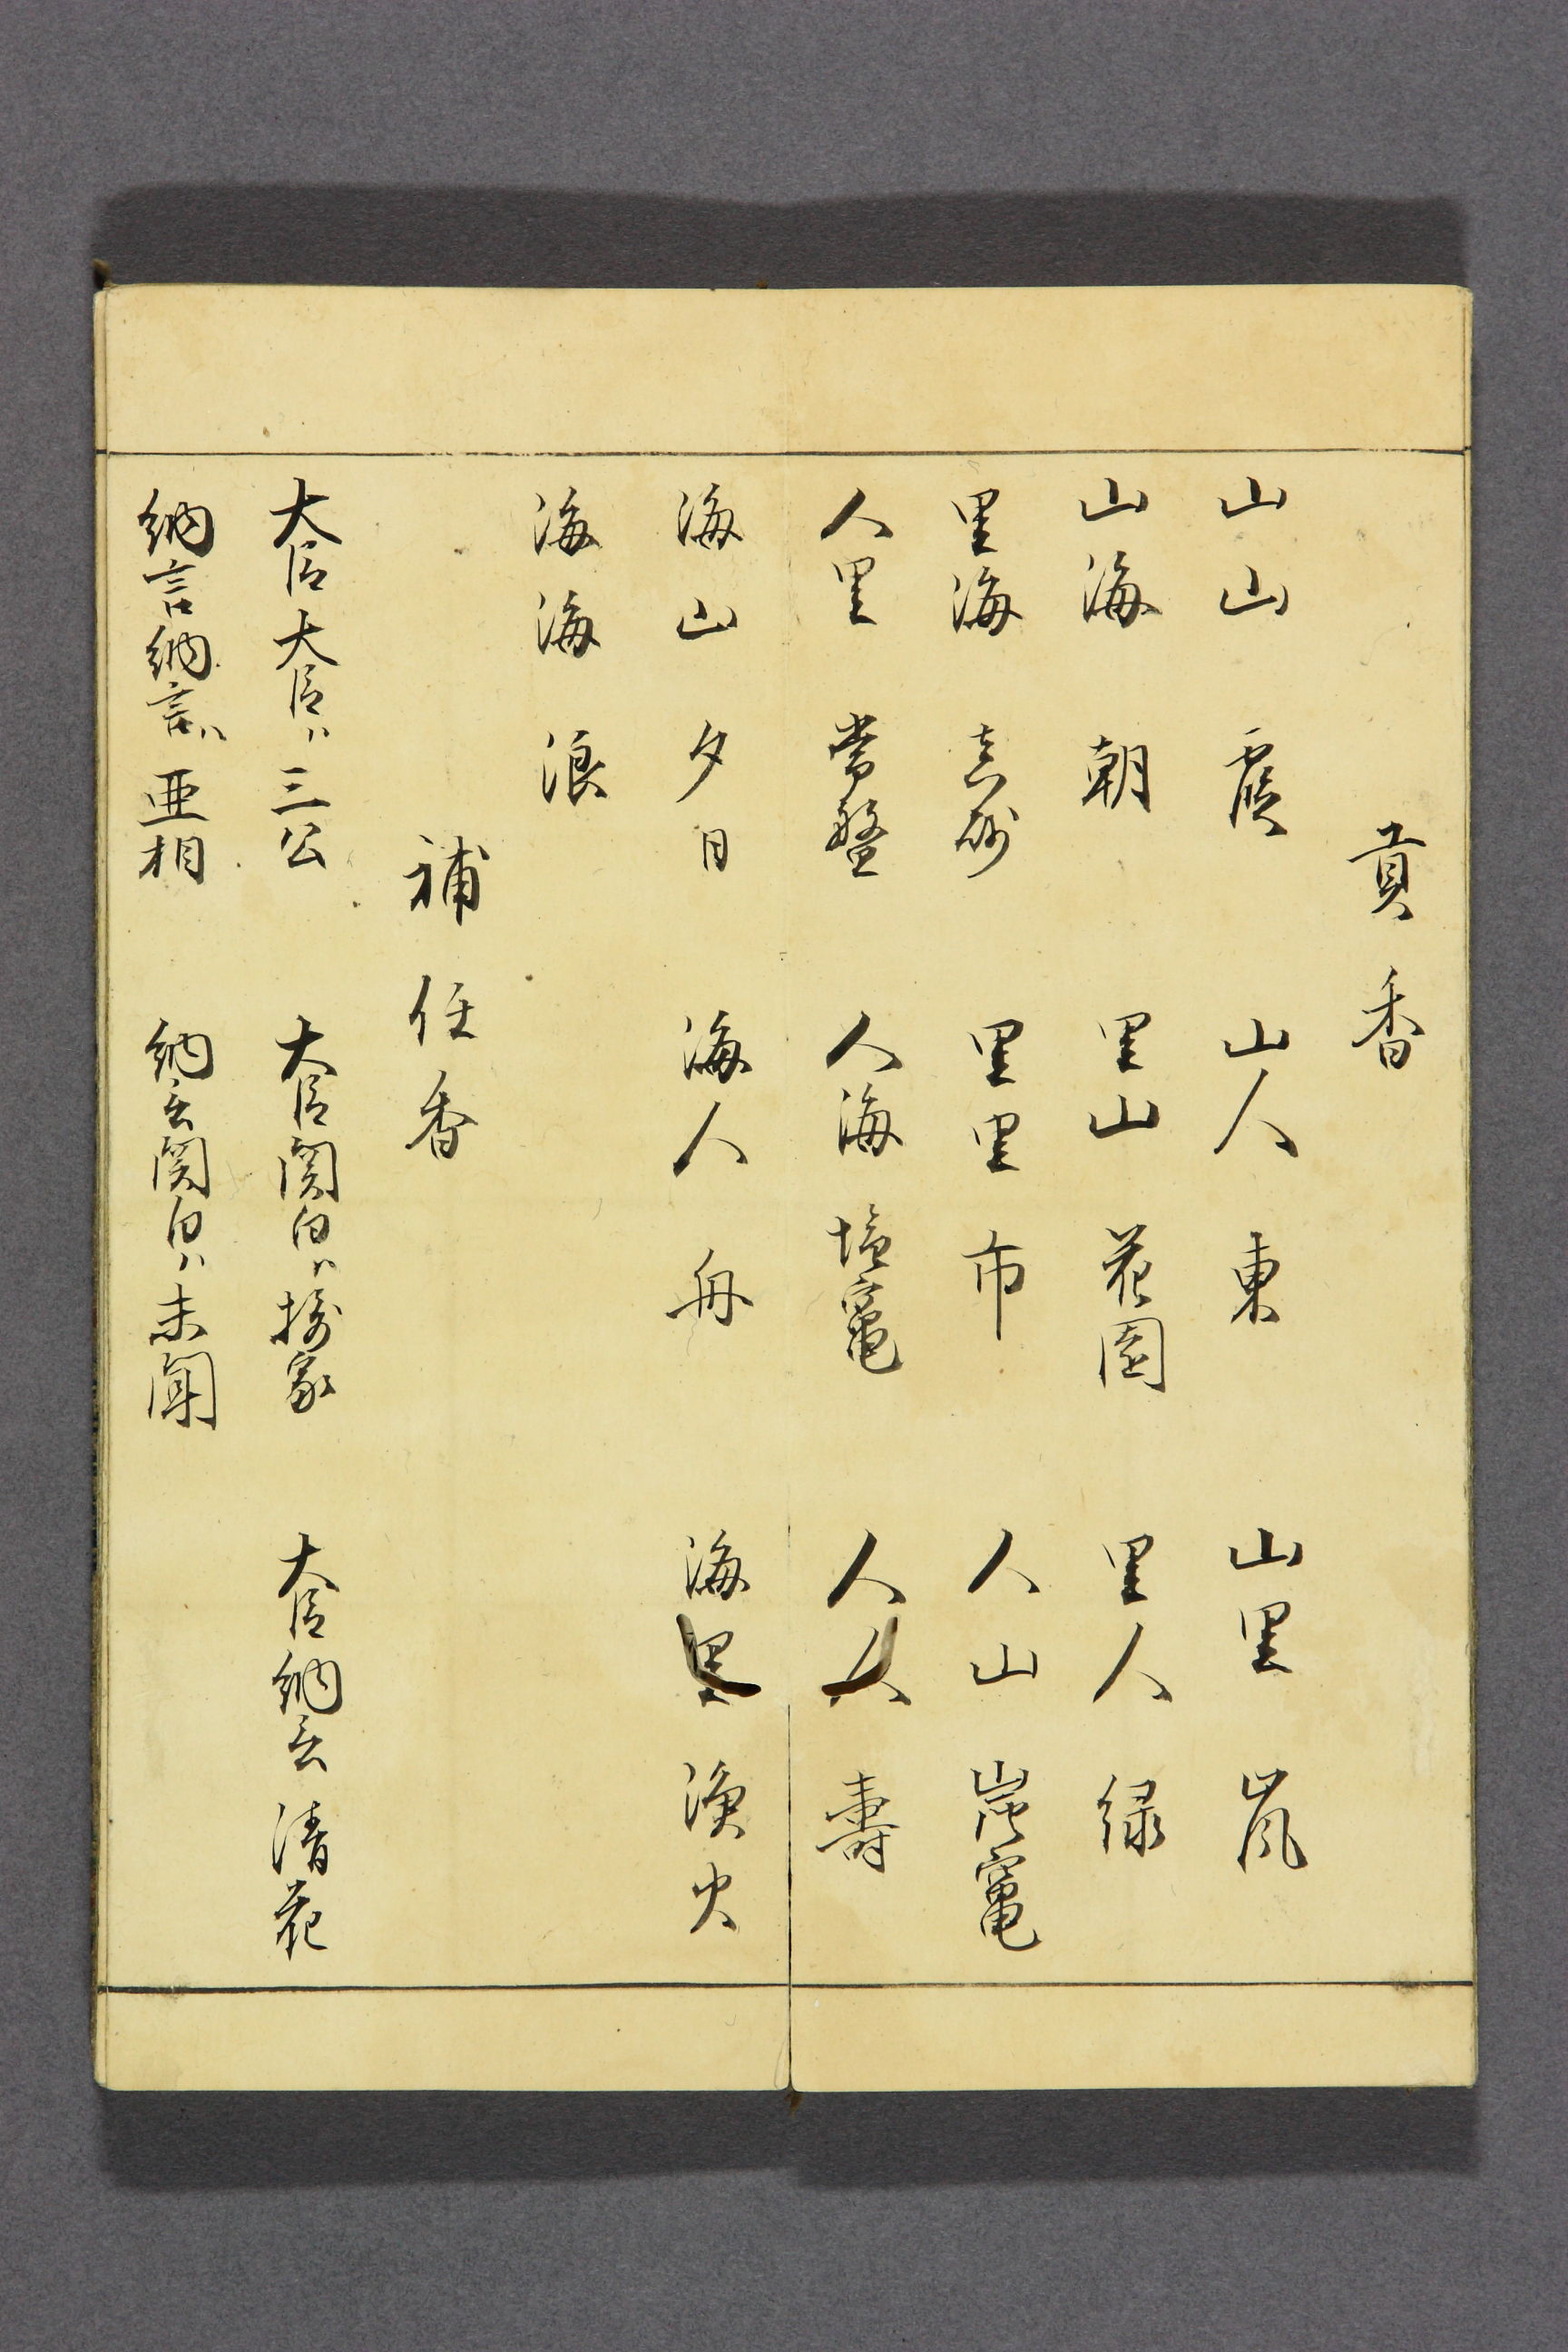 貢香
山山 霞 山人 東 山里 嵐
山海 朝 里山 花園 里人 緑
里海 真砂 里里 市 人山 炭竈
人里 常盤 人海 塩竈 人人 壽
海山 夕日 海人 舟 海里 漁火
海海 浪
補任香
大臣大臣ハ三公 大臣関白ハ摂家 大臣納言 清花
納言納言ハ亜相 納言関白ハ未聞